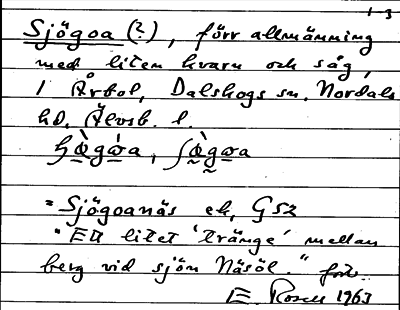 1 3
Sjögoa (?), förr allmänning
med liten kvarn och såg,
i Årbol, Dalskogs sn. Nordals
hd. Älvsb. l.
"Sjögoanäs ek, G52
"Ett litet 'tränge' mellan
berg vid sjön Näsöl."
E. Rosell 1963